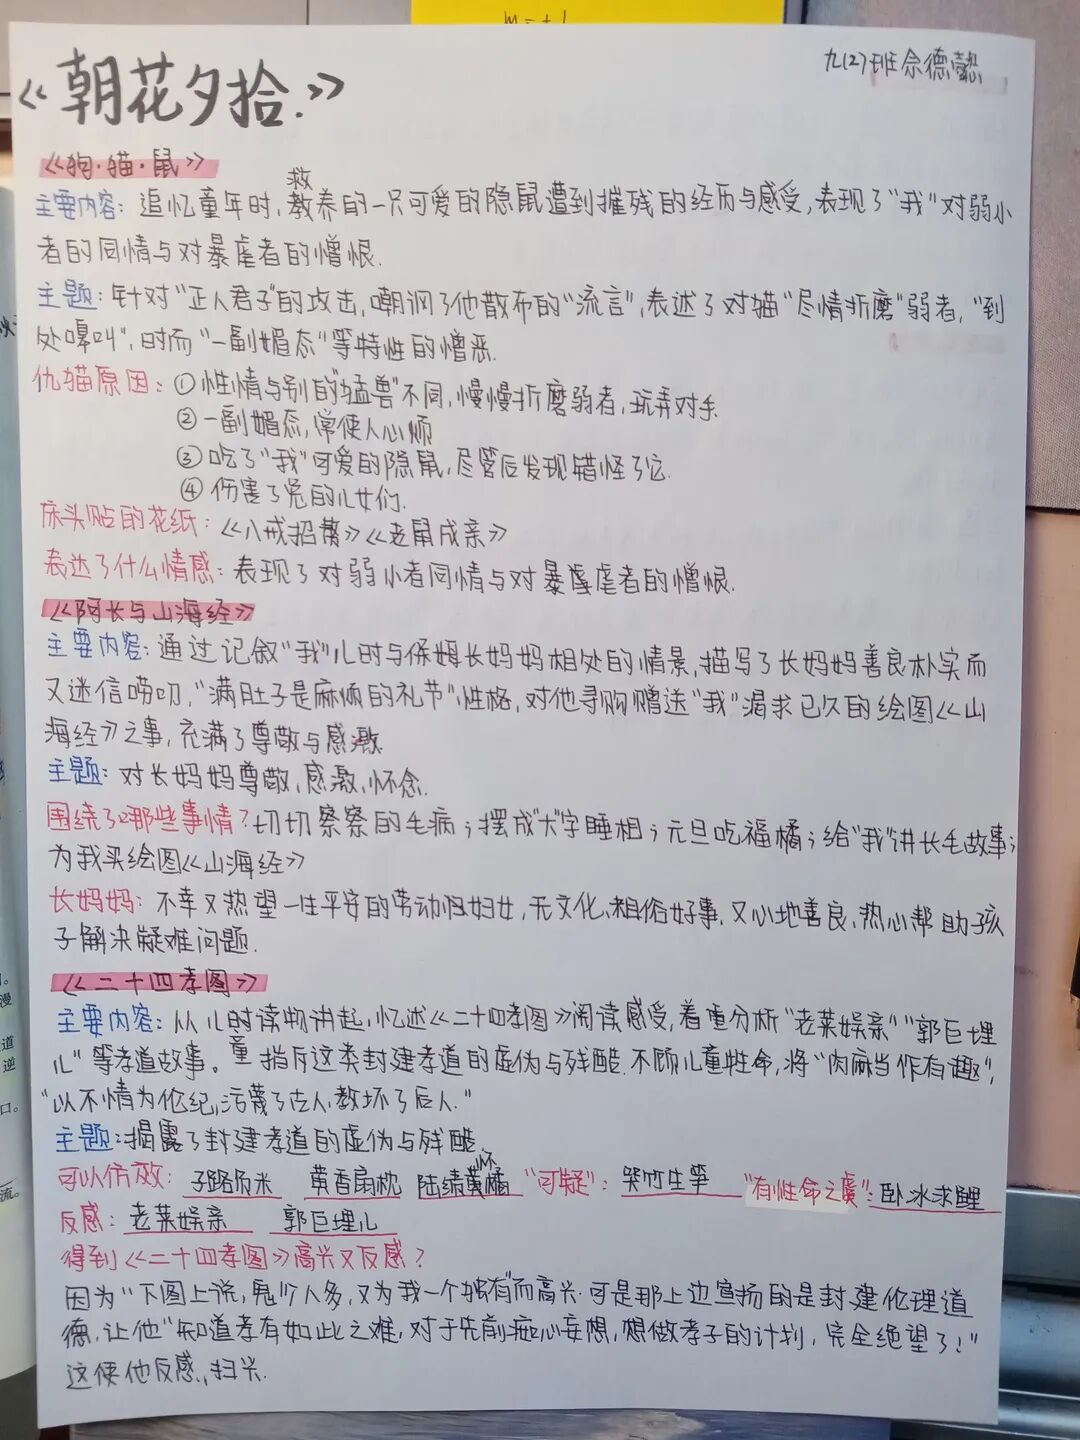 九(2)班佘德懿
《朝花夕拾.》
《狗·猫·鼠》
救
主要内容：追忆童年时,教养的一只可爱的隐鼠遭到摧残的经历与感受,表现了"我"对弱小
者的同情与对暴虐者的憎恨.
主题：针对"正人君子"的攻击,嘲讽了他散布的"流言",表述了对猫"尽情折磨"弱者,"到
处嗥叫",时而"一副媚态"等特性的憎恶.
仇猫原因：①性情与别的"猛兽"不同,慢慢折磨弱者,玩弄对手.
②一副媚态,常使人心烦
③吃了"我"可爱的隐鼠,尽管后发现错怪了它.
④伤害了兔的儿女们.
床头贴的花纸：《八戒招赘》《老鼠成亲》
表达了什么情感：表现了对弱小者同情与对暴虐者的憎恨.
《阿长与山海经》
主要内容：通过记叙"我"儿时与保姆长妈妈相处的情景,描写了长妈妈善良朴实而
又迷信唠叨,"满肚子是麻烦的礼节"性格,对他寻购赠送"我"渴求已久的绘图《山
海经》之事,充满了尊敬与感激.
主题：对长妈妈尊敬,感激,怀念.
围绕了哪些事情?切切察察的毛病;摆成"大"字睡相;元旦吃福橘;给"我"讲长毛故事;
为我买绘图《山海经》
长妈妈：不幸又热望一生平安的劳动妇女,无文化、粗俗好事,又心地善良、热心帮助孩
子解决疑难问题.
《二十四孝图》
主要内容：从儿时读物讲起,忆述《二十四孝图》阅读感受,着重分析"老莱娱亲""郭巨埋
儿"等孝道故事。重指斥这类封建孝道的虚伪与残酷.不顾儿童性命,将"肉麻当作有趣",
"以不情为伦纪,污蔑了古人,教坏了后人."
主题：揭露了封建孝道的虚伪与残酷.
怀
可以仿效：子路负米 黄香扇枕 陆绩橘 "可疑"：哭竹生笋 "有性命之虞"：卧冰求鲤
反感：老莱娱亲 郭巨埋儿
得到《二十四孝图》高兴又反感?
因为"下图上说,鬼少人多,又为我一个独有"而高兴.可是那上边宣扬的是封建伦理道
德,让他"知道孝有如此之难,对于先前痴心妄想,想做孝子的计划,完全绝望了!"
这使他反感,扫兴.